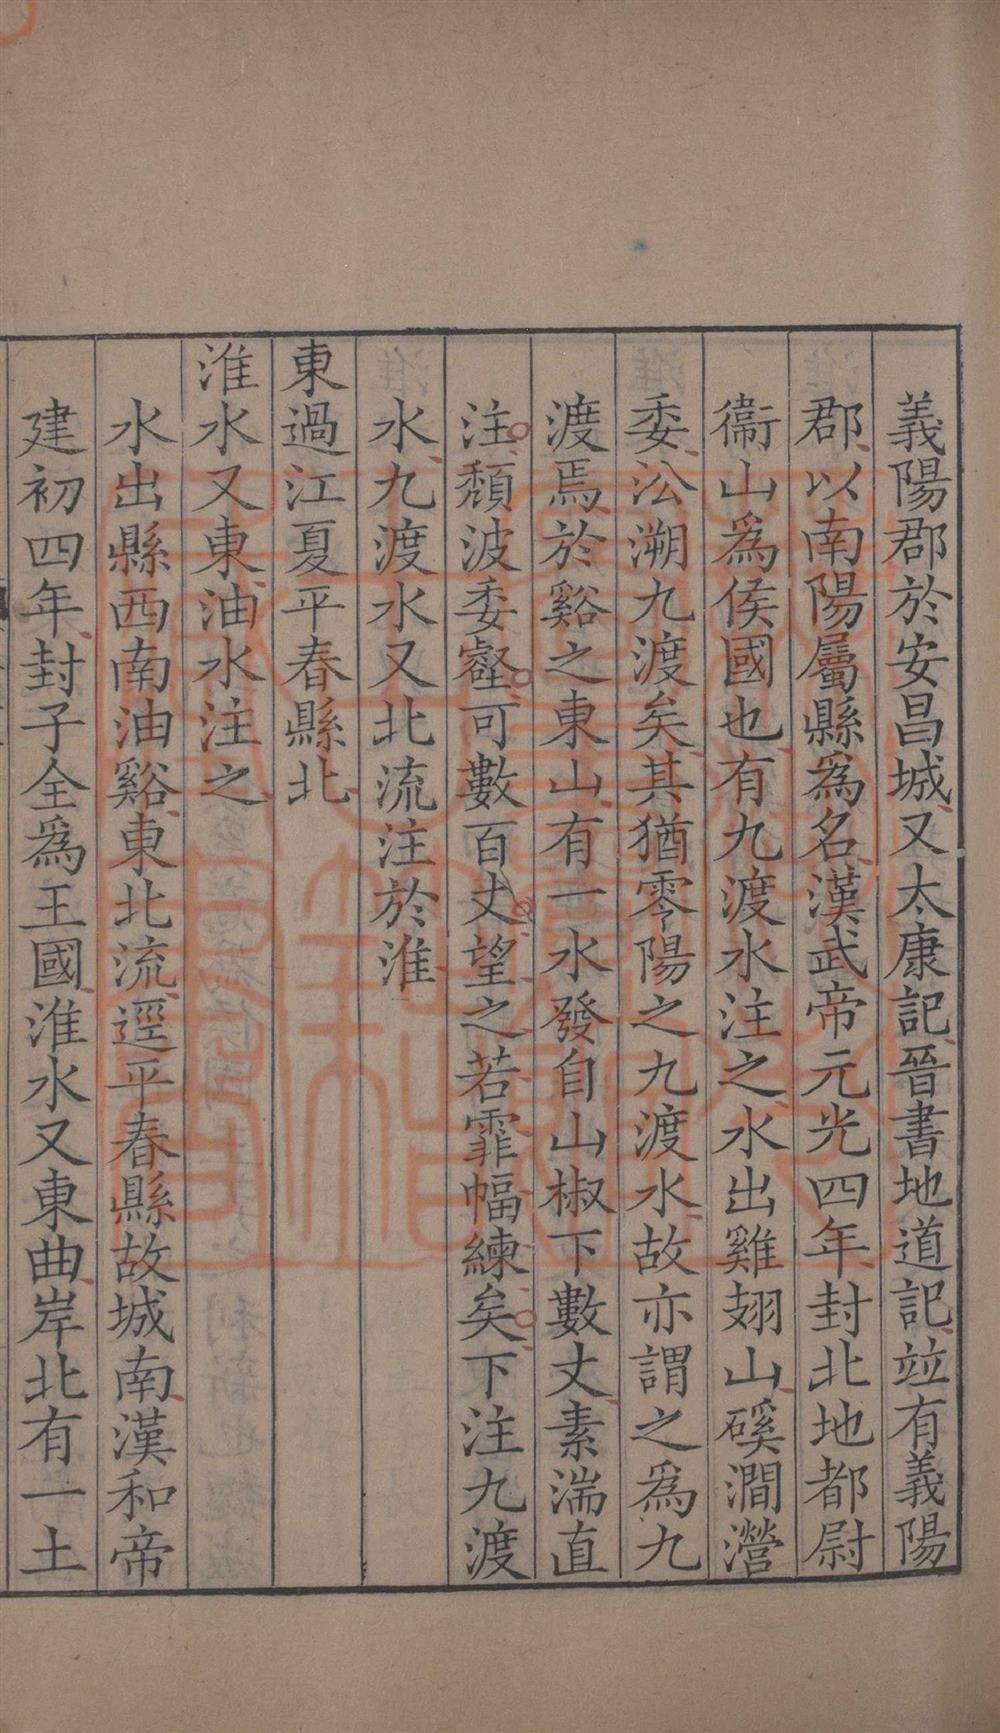 義陽郡於安昌城又太康記晉書地道記竝有義陽
郡以南陽屬縣為名漢武帝元光四年封北地都尉
衞山為侯國也有九渡水注之水出雞翅山磎澗瀯
委沿溯九渡矣其猶零陽之九渡水故亦謂之為九
渡焉於谿之東山有一水發自山椒下數丈素湍直
注頽波委壑可數百丈望之若霏幅練矣下注九渡
水九渡水又北流注於淮
東過江夏平春縣北
淮水又東油水注之
水出縣西南油谿東北流逕平春縣故城南漢和帝
建初四年封子全為王國淮水又東曲岸北有一土